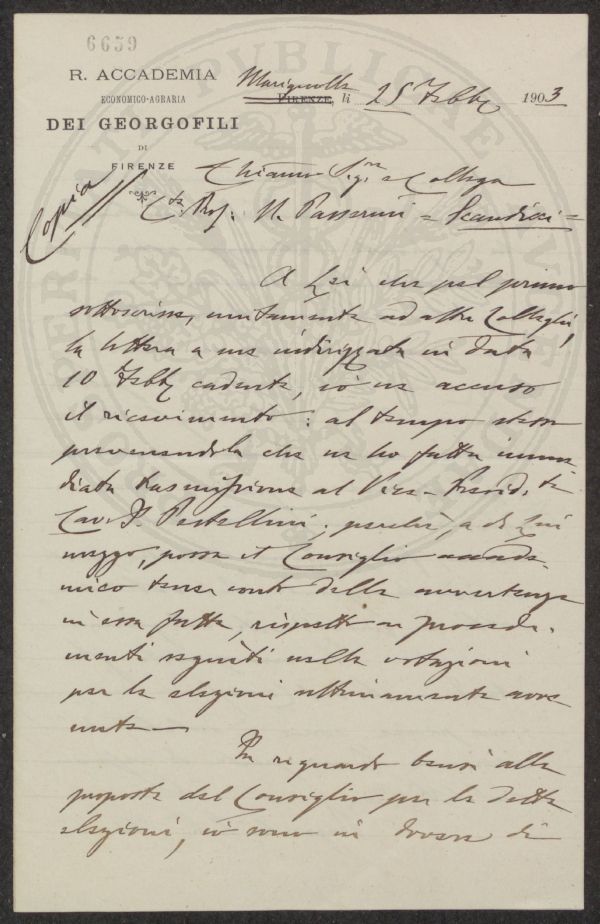 6659
R. ACCADEMIA
ECONOMICO-AGRARIA
DEI GEORGOFILI
DI
FIRENZE
Marignolle
FIRENZE, li 25 Febb 1903
Copia
Chiarmo Sigr e Collega
Cte Prof. N. Passerini = Scandicci =
A Lei che pel primo
sottoscrisse, unitamente ad altri Colleghi,
la lettera a me indirizzata in data
10 Febb cadente, io ne accuso
il ricevimento: al tempo stesso
prevenendola che ne ho fatta imme
diata trasmissione al Vice-Presid.te
Cav. P. Pestellini, perchè, a di Lui
mezzo, possa il Consiglio accade
mico tener conto delle avvertenze
in essa fatte, rispetto a procedi.
menti seguiti nelle votazioni
per le elezioni ultimamente avve
nute—
In riguardo bensì alle
proposte del Consiglio per le dette
elezioni, io sono in dovere di